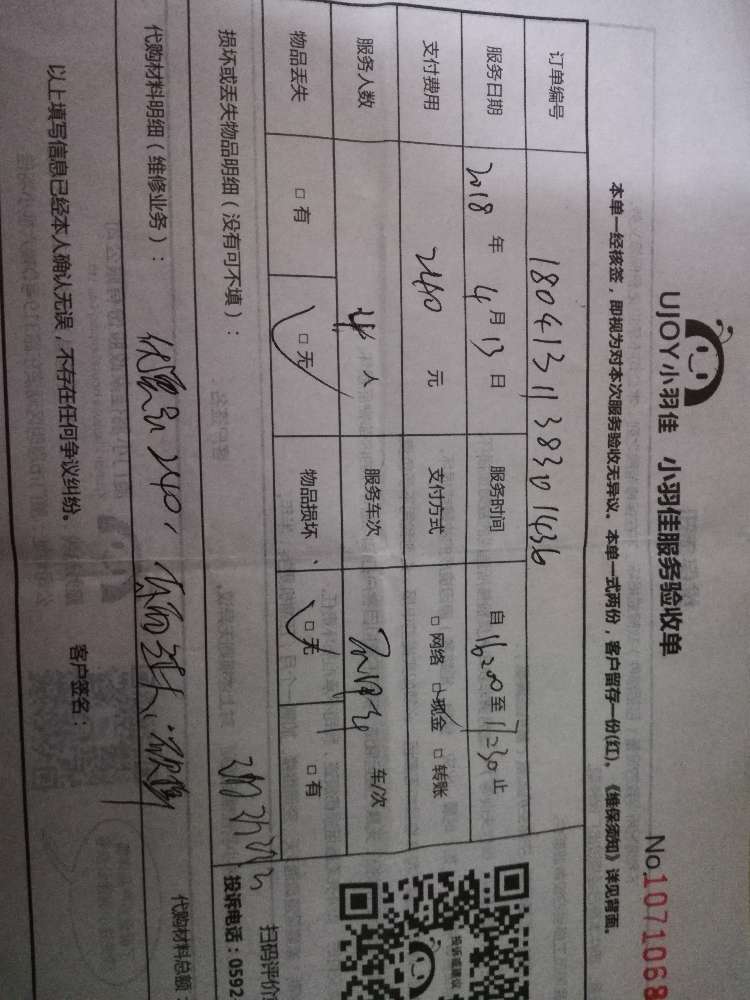 UJOY小羽佳 小羽佳服务验收单
No.1071068
本单一经核签，即视为对本次服务验收无异议。本单一式两份，客户留存一份(红)。《维保须知》详见背面。
订单编号 1804131138301436
服务日期 2018 年 4 月 13 日 服务时间 自 16:00 至 17:30 止
支付费用 240 元 支付方式 □ 网络 □ 现金 □ 转账
服务人数 人 服务车次 车/次
物品丢失 □ 有 □ 无 物品损坏 □ 无 □ 有
损坏或丢失物品明细（没有可不填）：
代购材料明细（维修业务）： 240，
代购材料总额：
以上填写信息已经本人确认无误，不存在任何争议纠纷。
客户签名：
投诉或建议
扫码评价
投诉电话：0592